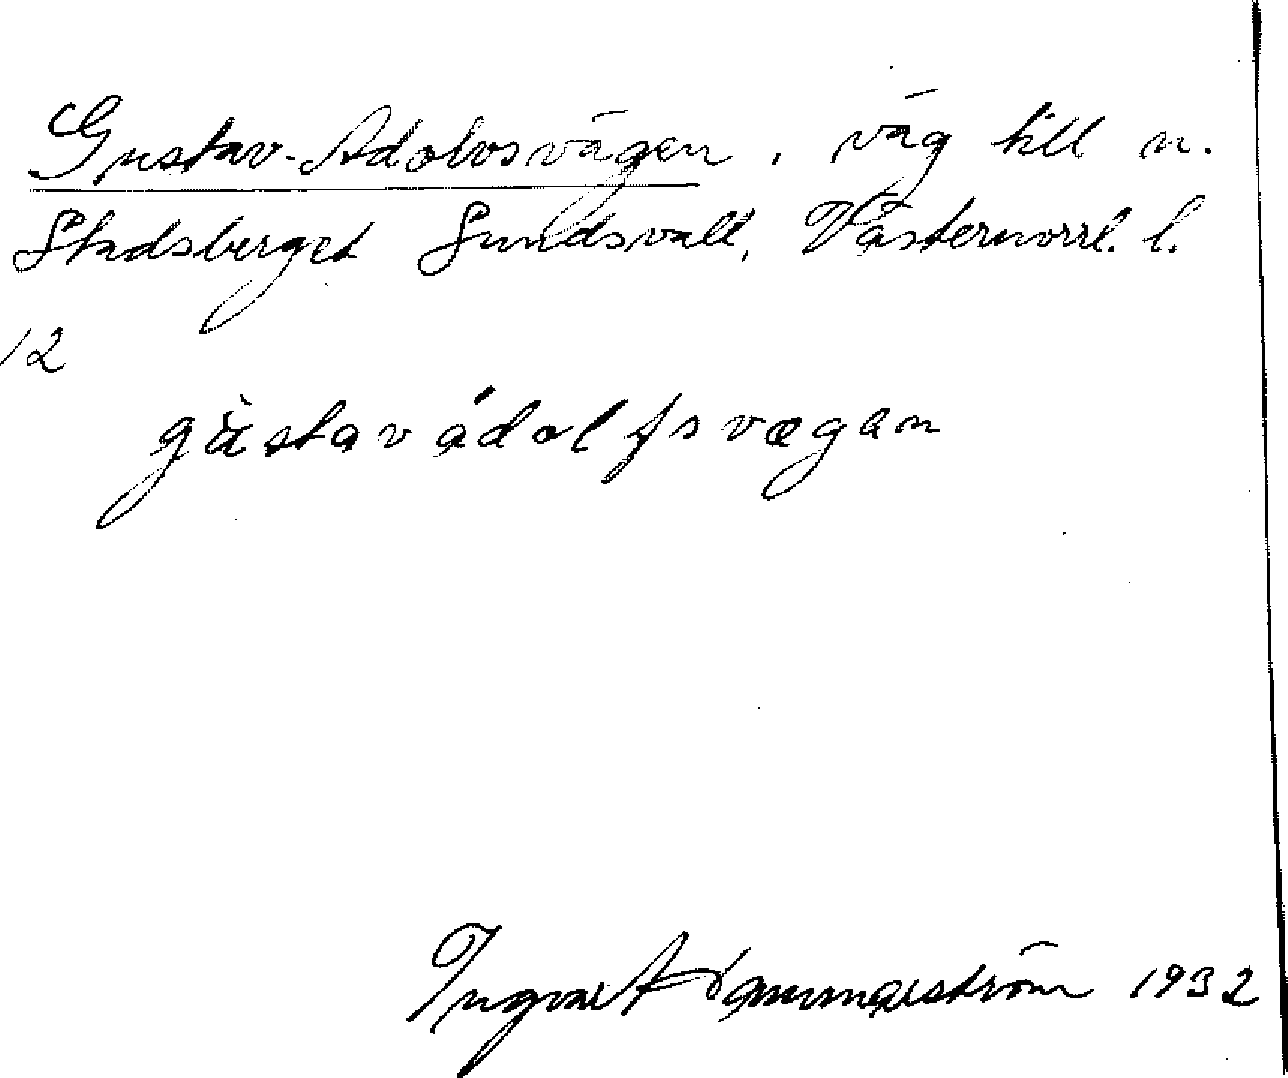 Gustav-Adolvsvägen, väg till n.
Stadsberget Sundsvall, Västernorrl. l.
12
gustav ádolfsvægan
Ingvar 1932